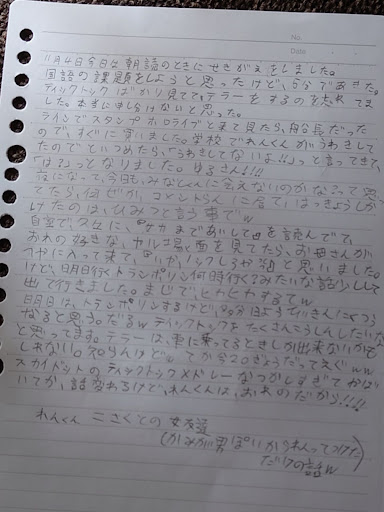 No.
Date
11月4日今日は朝読のときにせきがえをしました。
国語の課題をしようと思ったけど、5分であきた。
ティックトックばかり見てて、テラーをするの忘れてま
した。本当に申し分けないと思った。
ラインでスタンプホロライブと来て見たら、船長だった
ので、すぐに買いました。学校でれんくんがうわきして
たのでといつめたら、「うわきしてないよ!!」と言ってきて、
「は?」っとなりました。ゆるさん!!!
夜になって、今日も、みなくんに会えないのかなって思っ
てたら、何ぜか、コメントらんに居て、はっきょうしか
けたのは、ひみつと言う事でw
自室で2人に、「サカまであいして」を読んでて、
おれの好きな、ヤル場面を見てたら、お母さんが
へやに入って来て、「いや、ノックしろや」と思いました。
けど、明日行くトランポリン何時行く?みたいな話しして
出て行きました。まじで、ヒヤヒヤするてw
明日は、トランポリンするけど、
なると思う。だるwティックトックをたくさんこうしんしたいな
と思ってます。テラーは、車に乗ってるときしか出来ないかも
しれない。知らんけどwてか今20ぎょうだってえぐww
スカイドットのティックトックメドレーなつかしすぎておば
いてか、話変わるけど、れんくんは、おれのだから!!!!
れんくん=さくとの女友達
(かみが男ぽいかられんってつけた
だけの話w